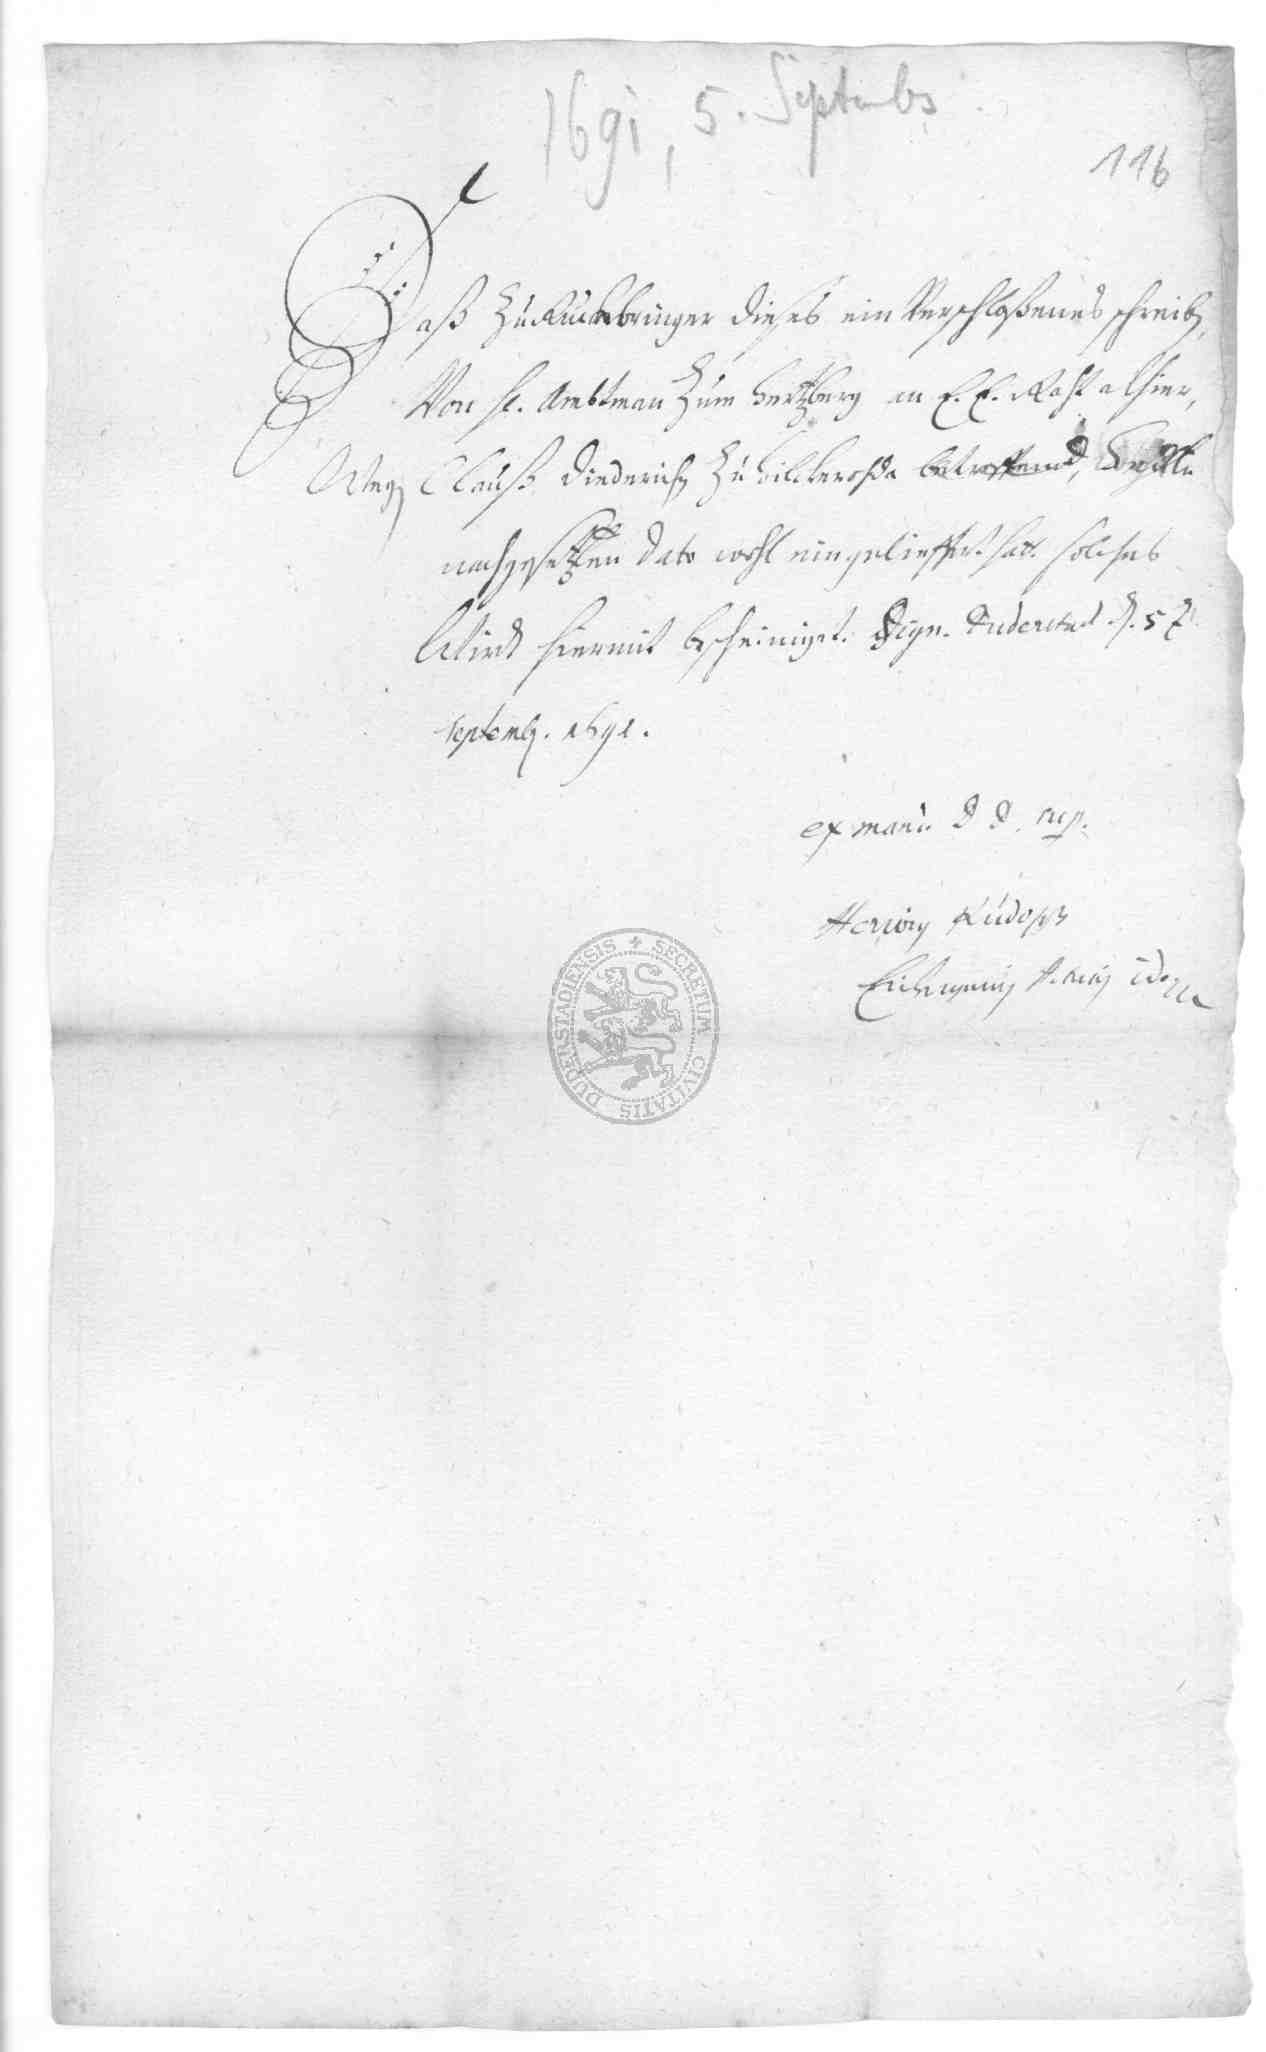 1691, 5. Septembr
116
Daß Zuruckbringer dieses ein Verschloßenes schreib,
Von H. Ambtman Zum Hertzberg an E. E. Raht alhier,
Weg Clauß Diederich Zu Bilderoshe betreffend,
nachgesetzten dato wohl eingelieffert hatt. solches
Wird hiermit bescheiniget. Sign. Duderstad d. 5
Septemb. 1691.
ex man. D D. mp.
SECRETUM CIVITATIS DUDERSTADIENSIS